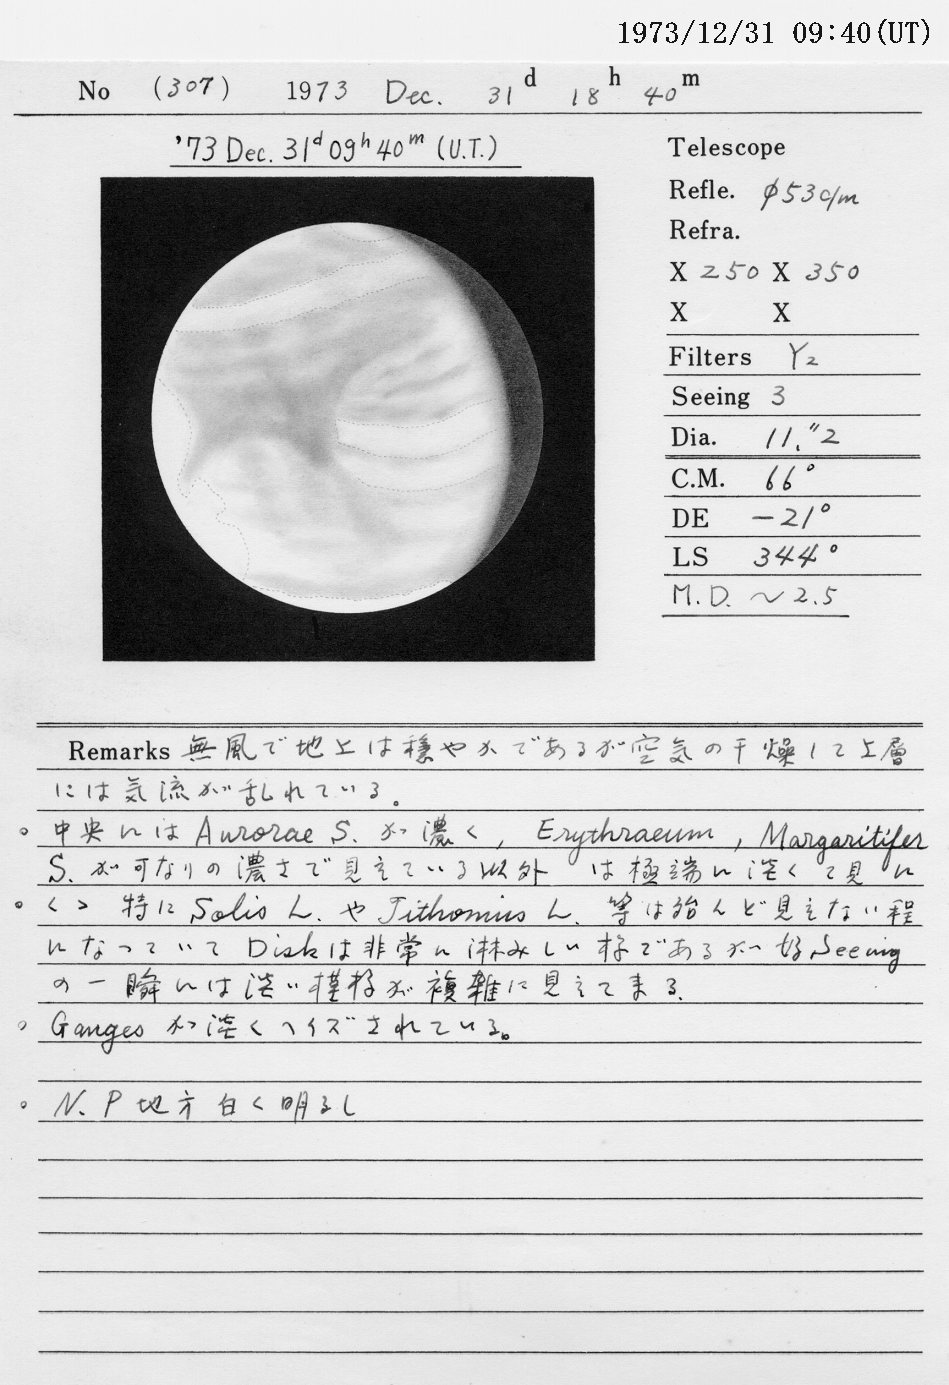 1973/12/31 09:40(UT)
No (307) 1973 Dec. 31d 18h 40m
'73 Dec. 31d 09h 40m (U.T.)
Telescope
Refle. φ53c/m
Refra.
X 250 X 350
X X
Filters Y2
Seeing 3
Dia. 11."2
C.M. 66°
DE −21°
LS 344°
M.D. ～2.5
Remarks 無風で地上は穏やかであるが空気の干燥して上層
には気流が乱れている。
○ 中央にはAurorae S. が濃く, Erythraeum, Margaritifer
S. が可なりの濃さで見えている以外 は極端に淡くて見に
○ くゝ 特にSolis L. や Tithonius L. 等は殆んど見えない程
になっていて Diskは非常に淋みしい様であるが 好Seeing
の一瞬には淡い模様が複雑に見えてまる.
○ Ganges が淡くヘイズされている。
○ N.P地方白く明るし